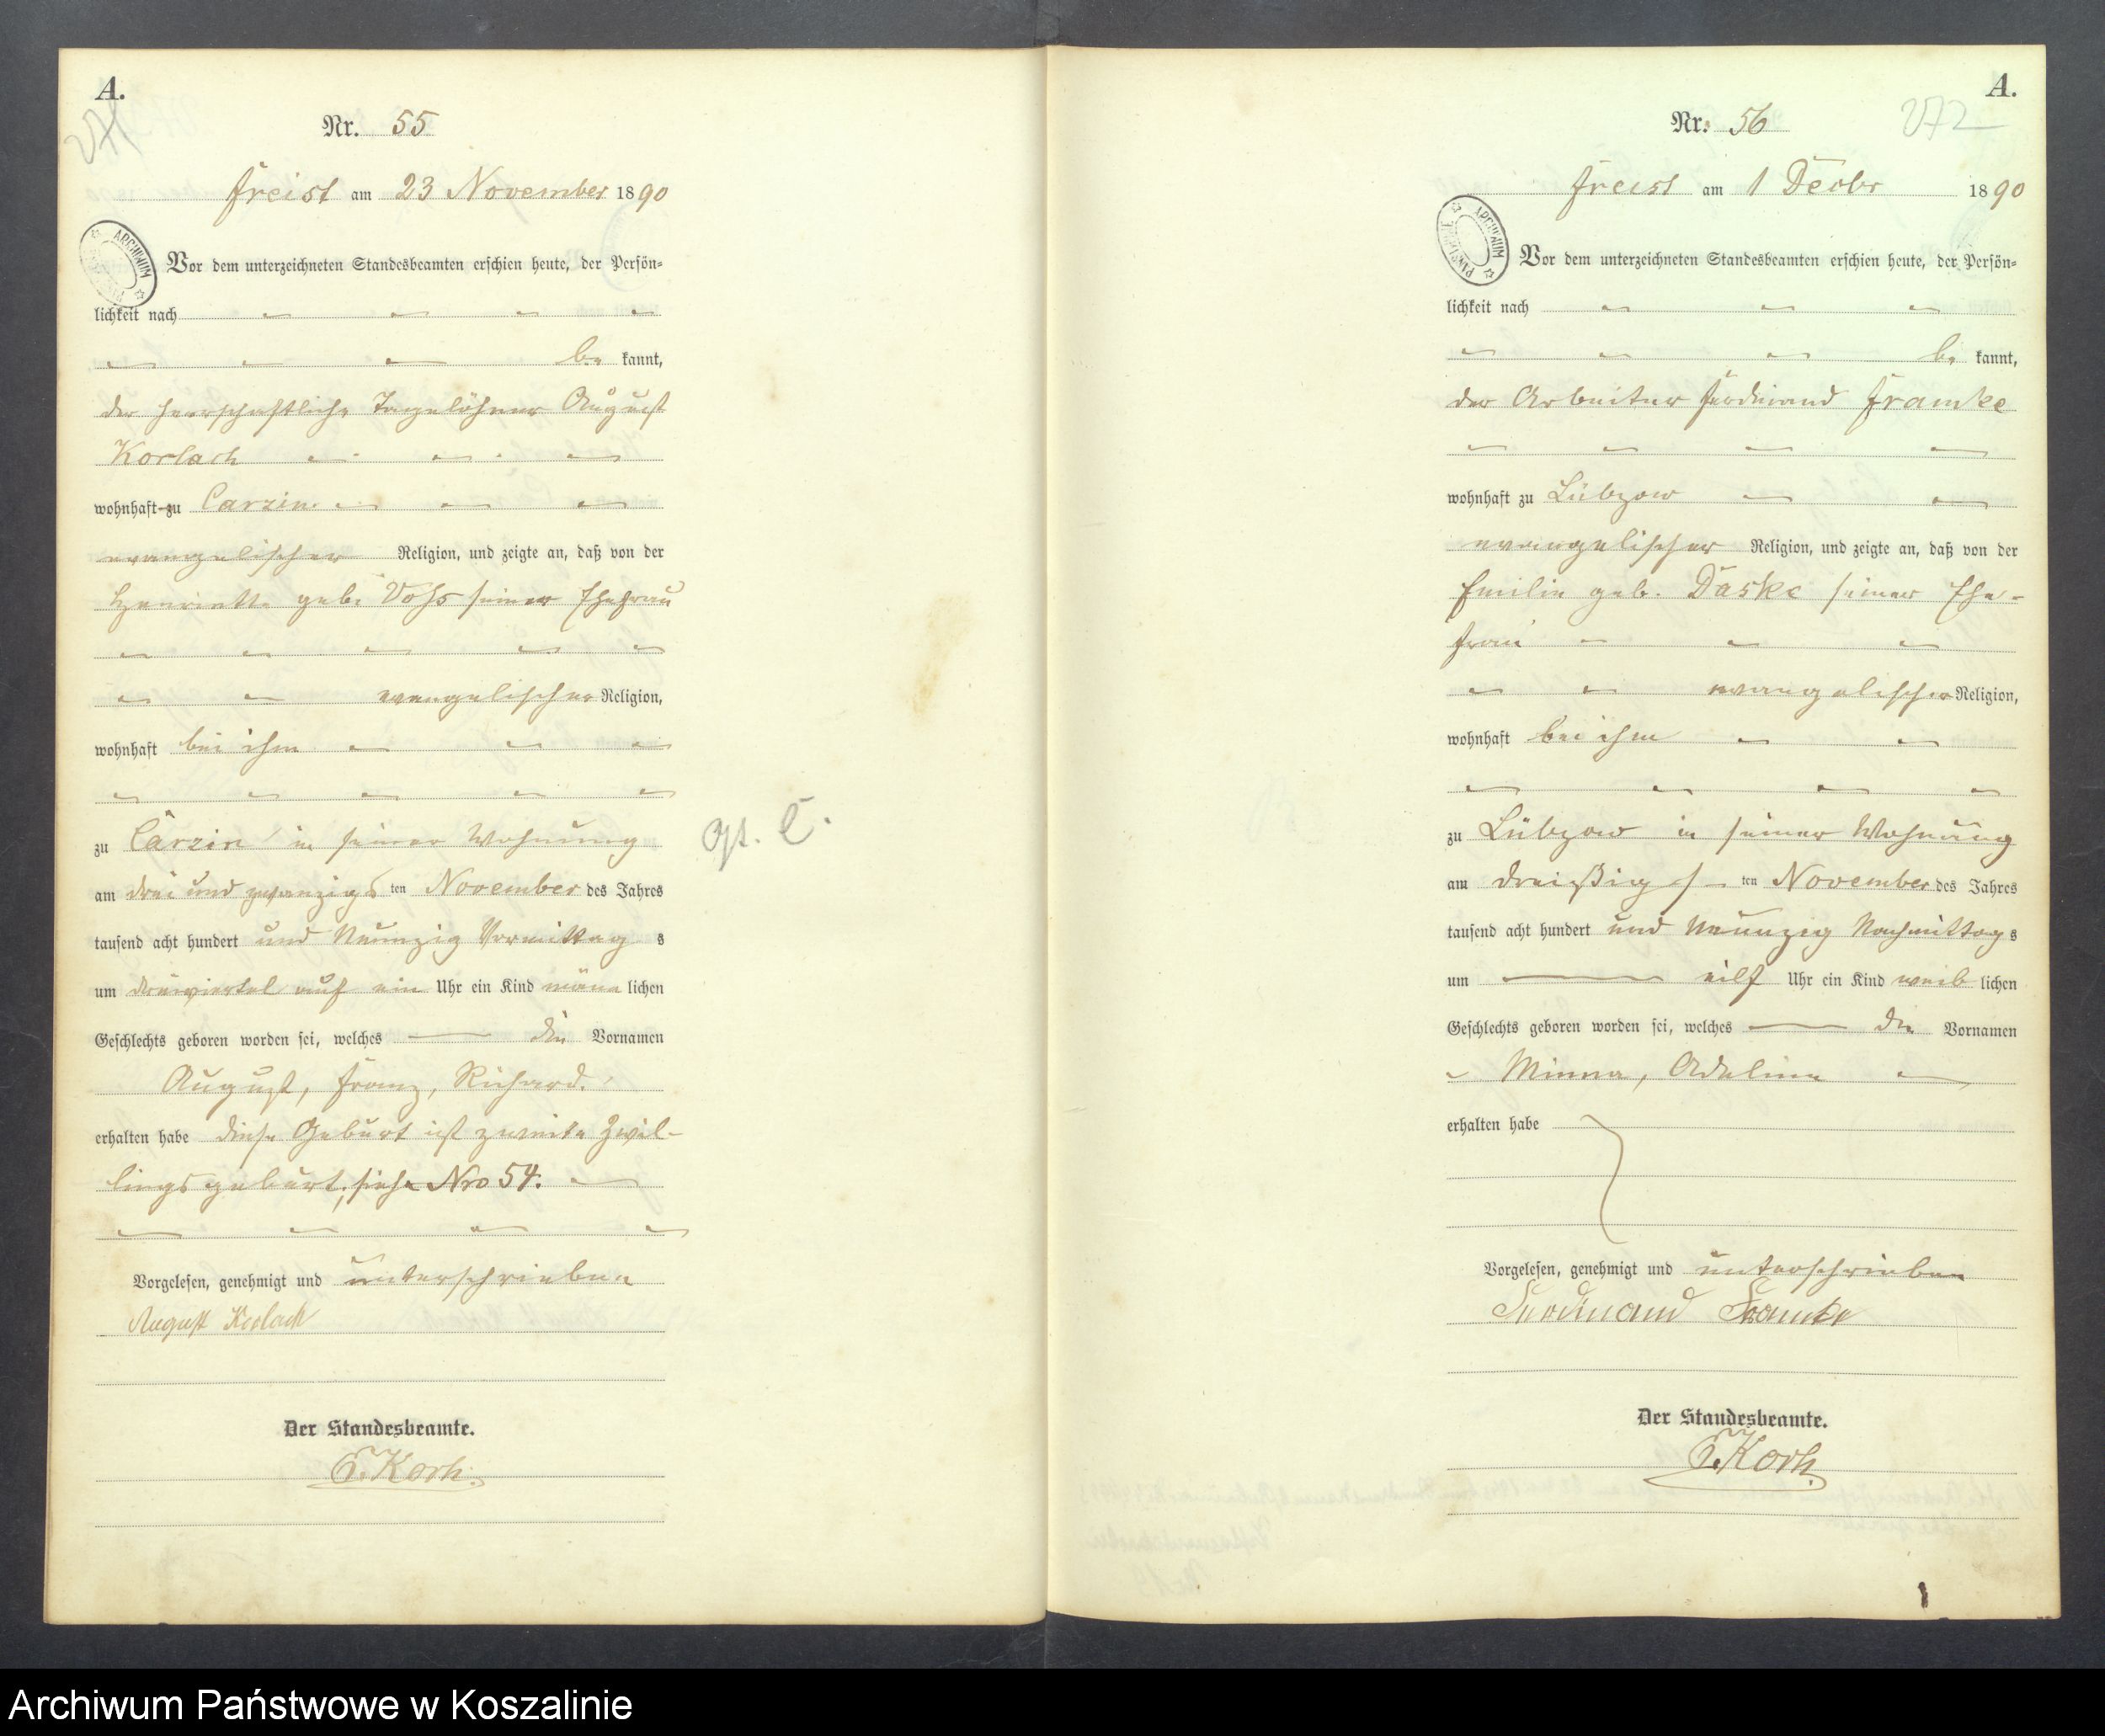 A.
271
Nr. 55
Freist am 23 November 1890
ARCHIWUM
Vor dem unterzeichneten Standesbeamten erschien heute, der Persön=
lichkeit nach
be kannt,
der herrschaftliche Tagelöhner August
Korlach
wohnhaft zu Carzin
evangelischer Religion, und zeigte an, daß von der
Henriette geb. Vohs seiner Ehefrau
evangelischer Religion,
wohnhaft bei ihm
zu Carzin in seiner Wohnung
am drei und zwanzigs ten November des Jahres
tausend acht hundert und Neunzig Vormittag s
um dreiviertel auf ein Uhr ein Kind männ lichen
Geschlechts geboren worden sei, welches die Vornamen
August, Franz, Richard.
erhalten habe diese Geburt ist zweite Zwil-
lingsgeburt, siehe Nro 54.
Vorgelesen, genehmigt und unterschrieben
August Korlach
Der Standesbeamte.
E. Korh.
A.
272
Nr. 56
Freist am 1 Decbr 1890
ARCHIWUM PAŃSTWOWE
Vor dem unterzeichneten Standesbeamten erschien heute, der Persön=
lichkeit nach
be kannt,
der Arbeiter Ferdinand Framke
wohnhaft zu Lübzow
evangelischer Religion, und zeigte an, daß von der
Emilie geb. Daske seiner Ehe-
frau
evangelischer Religion,
wohnhaft bei ihm
zu Lübzow in seiner Wohnung
am dreißigs ten November des Jahres
tausend acht hundert und Neunzig Nachmittag s
um eilf Uhr ein Kind weib lichen
Geschlechts geboren worden sei, welches die Vornamen
Minna, Adeline
erhalten habe
Vorgelesen, genehmigt und unterschrieben
Ferdinand Framke
Der Standesbeamte.
E. Korh.
Archiwum Państwowe w Koszalinie